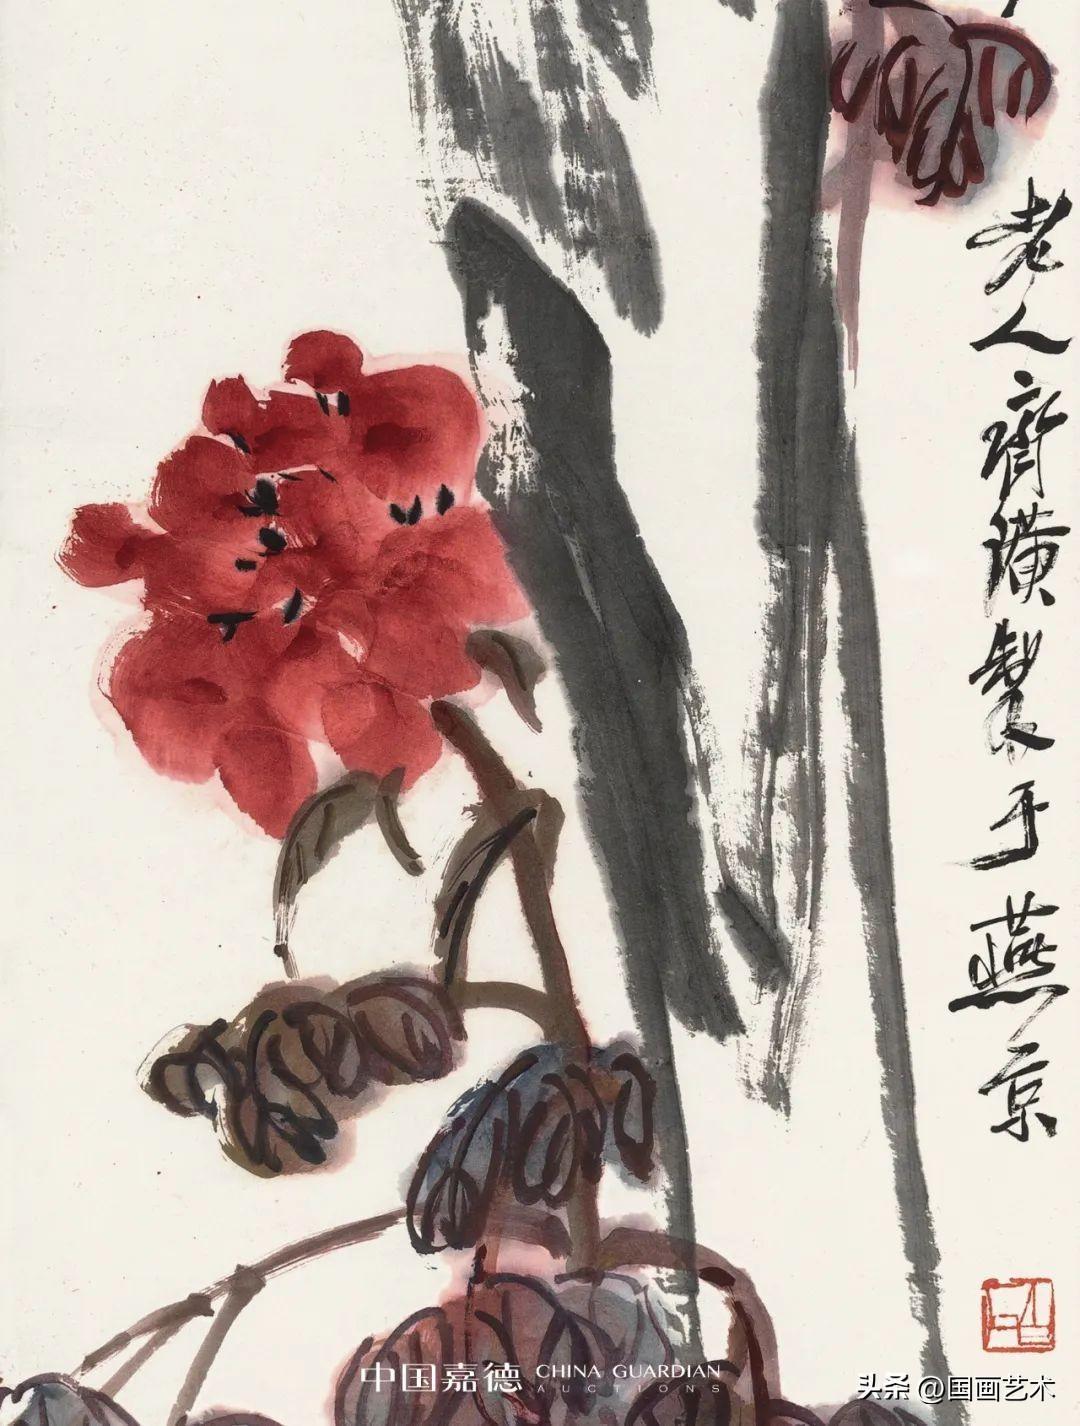 老人齊璜製于燕京
中国嘉德 CHINA GUARDIAN
AUCTIONS
头条 @国画艺术